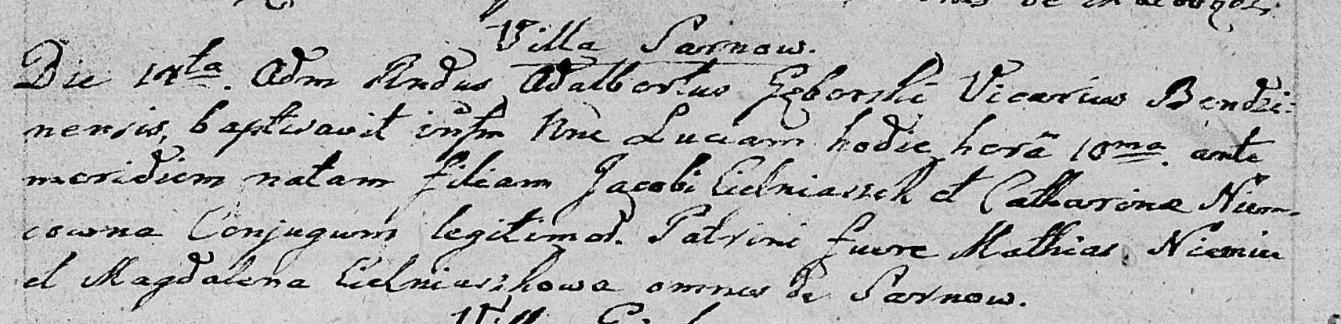 de
Villa Sarnow.
Die 14ta. Adm Rndus Adalbertus Gęborski Vicarius Bendzi-
nensis, baptisavit infm Nne Luciam hodie horâ 10ma. ante
meridiem natam filiam Jacobi Cielniaszek et Catharinæ Niem-
cowna Conjugum legitimor. Patrini fuere Mathias Niemiec
et Magdalena Cielniaszkowa omnes de Sarnow.
Villa